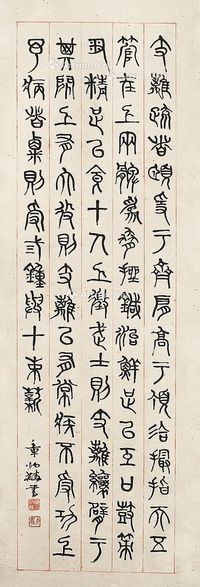 支離疏者頤㥯于齊肩高于頂㑹撮指天五
管在上兩髀為脅挫鍼治繲足以互口鼓筴
播精足以食十人上徵武士則支離攘臂于
其閒上有大役則支離以有常疾不受功上
予病者粟則受弎鍾與十束薪
章炳麟書